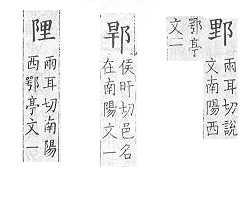 兩耳切說
文南陽西
鄂亭
文一
侯旰切邑名
在南陽文一
兩耳切南陽
西鄂亭文一